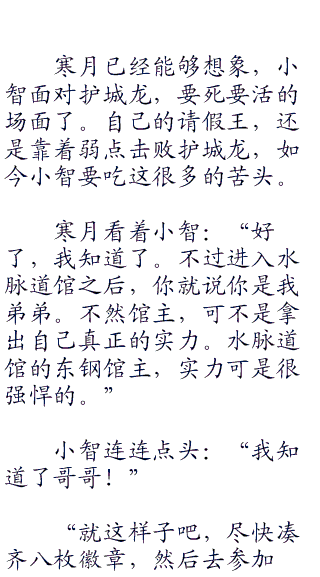 寒月已经能够想象，小
智面对护城龙，要死要活的
场面了。自己的请假王，还
是靠着弱点击败护城龙，如
今小智要吃这很多的苦头。
寒月看着小智：“好
了，我知道了。不过进入水
脉道馆之后，你就说你是我
弟弟。不然馆主，可不是拿
出自己真正的实力。水脉道
馆的东钢馆主，实力可是很
强悍的。”
小智连连点头：“我知
道了哥哥！”
“就这样子吧，尽快凑
齐八枚徽章，然后去参加